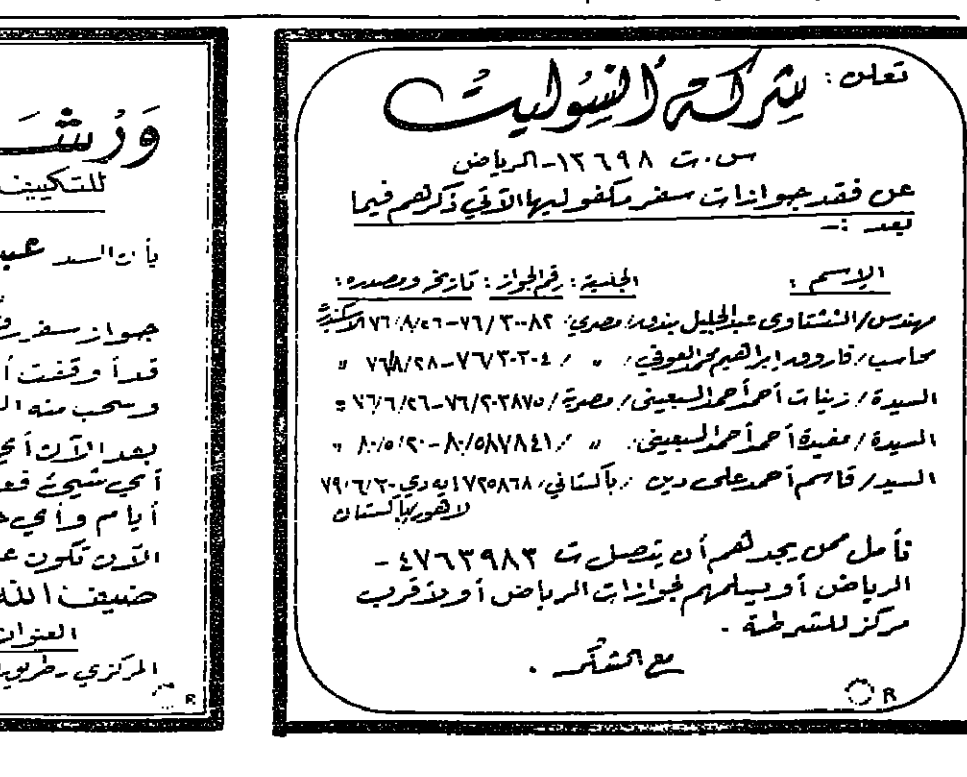 تعلن : شركة النسوليت
س.ت ١٣٦٩٨ - الرياض
عن فقد جوازات سفر مكفوليها الآتي ذكرهم فيما
بعد :-
الاسم : الجنسية : رقم الجواز : تاريخه ومصدره :
مهندس / الششتاوى عبدالجليل مصرى
محاسب / فاروق ابراهيم محمد العوفي / " / ٧٦/٣٠٢٠٤-٧٦/٨/٢٨ "
السيدة / زينات أحمد أحمد السبعينى / مصرية / ٧٦/٢٠٣٨٧٥-٧٦/٦/٢٦ =
السيدة / مفيدة أحمد أحمد السبعينى / " / ٨٠/٥٨٧٨٤١-٨٠/٥/٢٠ "
السيد / قاسم أحمد على دين / باكستاني / ١٧٢٥٨٦٨ ايه دي
لاهور باكستان
نأمل ممن يجدهم أن يتصل ت ٤٧٦٣٩٨٣ -
الرياض أو يسلمهم لجوازات الرياض أو لأقرب
مركز للشرطة .
مع الشكر .
R
ورشـ
للتكييف
بأن السيد
جواز سفر
قد أوقفت
وسحب منه
بعد الآن
أي شيئ
أيام وأي
الآن تكون
ضيف الله
العنوان
المركزي - طريق
R